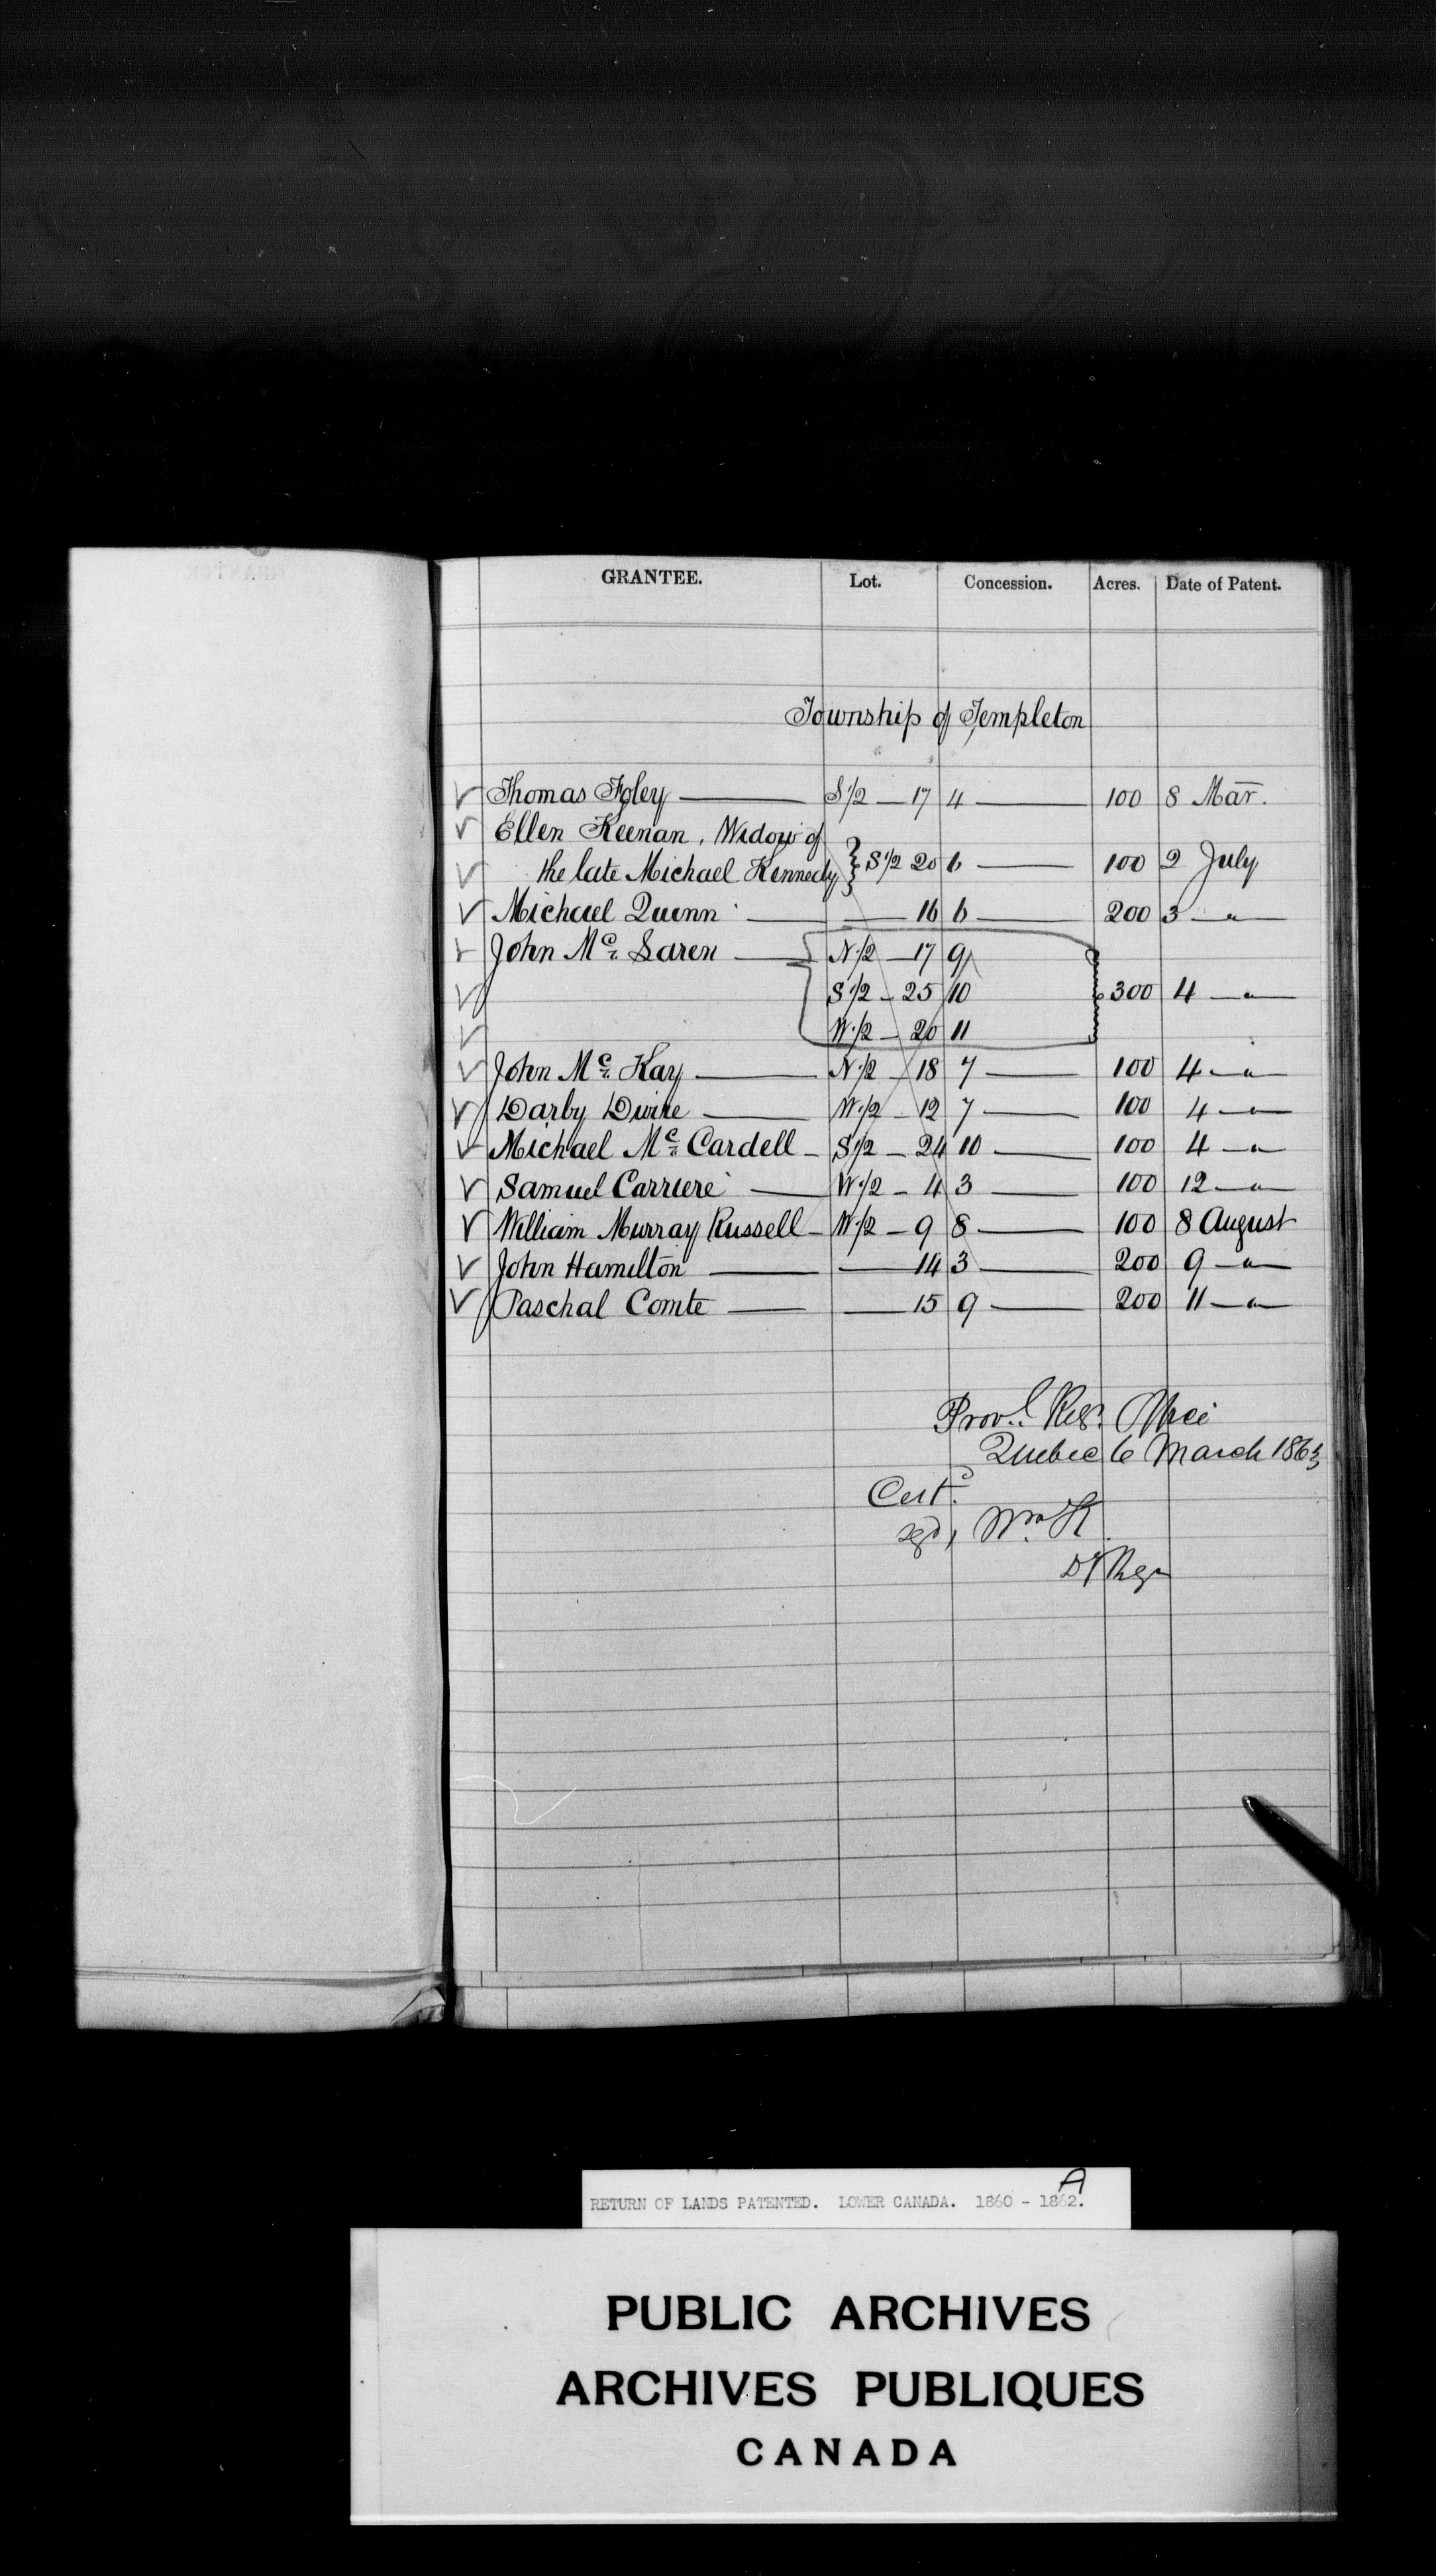 GRANTEE. Lot. Concession. Acres. Date of Patent.
Township of Templeton
Thomas Foley — S 1/2 — 17 4 — 100 8 Mar.
Ellen Keenan, Widow of
the late Michael Kennedy } S 1/2 20 6 — 100 2 July
Michael Quinn — — 16 6 — 200 3 — " —
John Mc. Laren — { N 1/2 — 17 9
S 1/2 — 25 10 } 300 4 — " —
W 1/2 — 20 11
John Mc. Kay — N 1/2 — 18 7 — 100 4 — "
Darby Dwire — W 1/2 — 12 7 — 100 4 — " —
Michael Mc. Cardell — S 1/2 — 24 10 — 100 4 — "
Samuel Carriere — W 1/2 — 4 3 — 100 12 — " —
William Murray Russell — W 1/2 — 9 8 — 100 8 August
John Hamilton — — 14 3 — 200 9 — " —
Paschal Comte — — 15 9 — 200 11 — " —
Provl. Regr. Office
Quebec 6 March 1863
Certd.
sgd, Wm. K
Dy Regr
RETURN OF LANDS PATENTED. LOWER CANADA. 1860 - 1862. A
PUBLIC ARCHIVES
ARCHIVES PUBLIQUES
CANADA